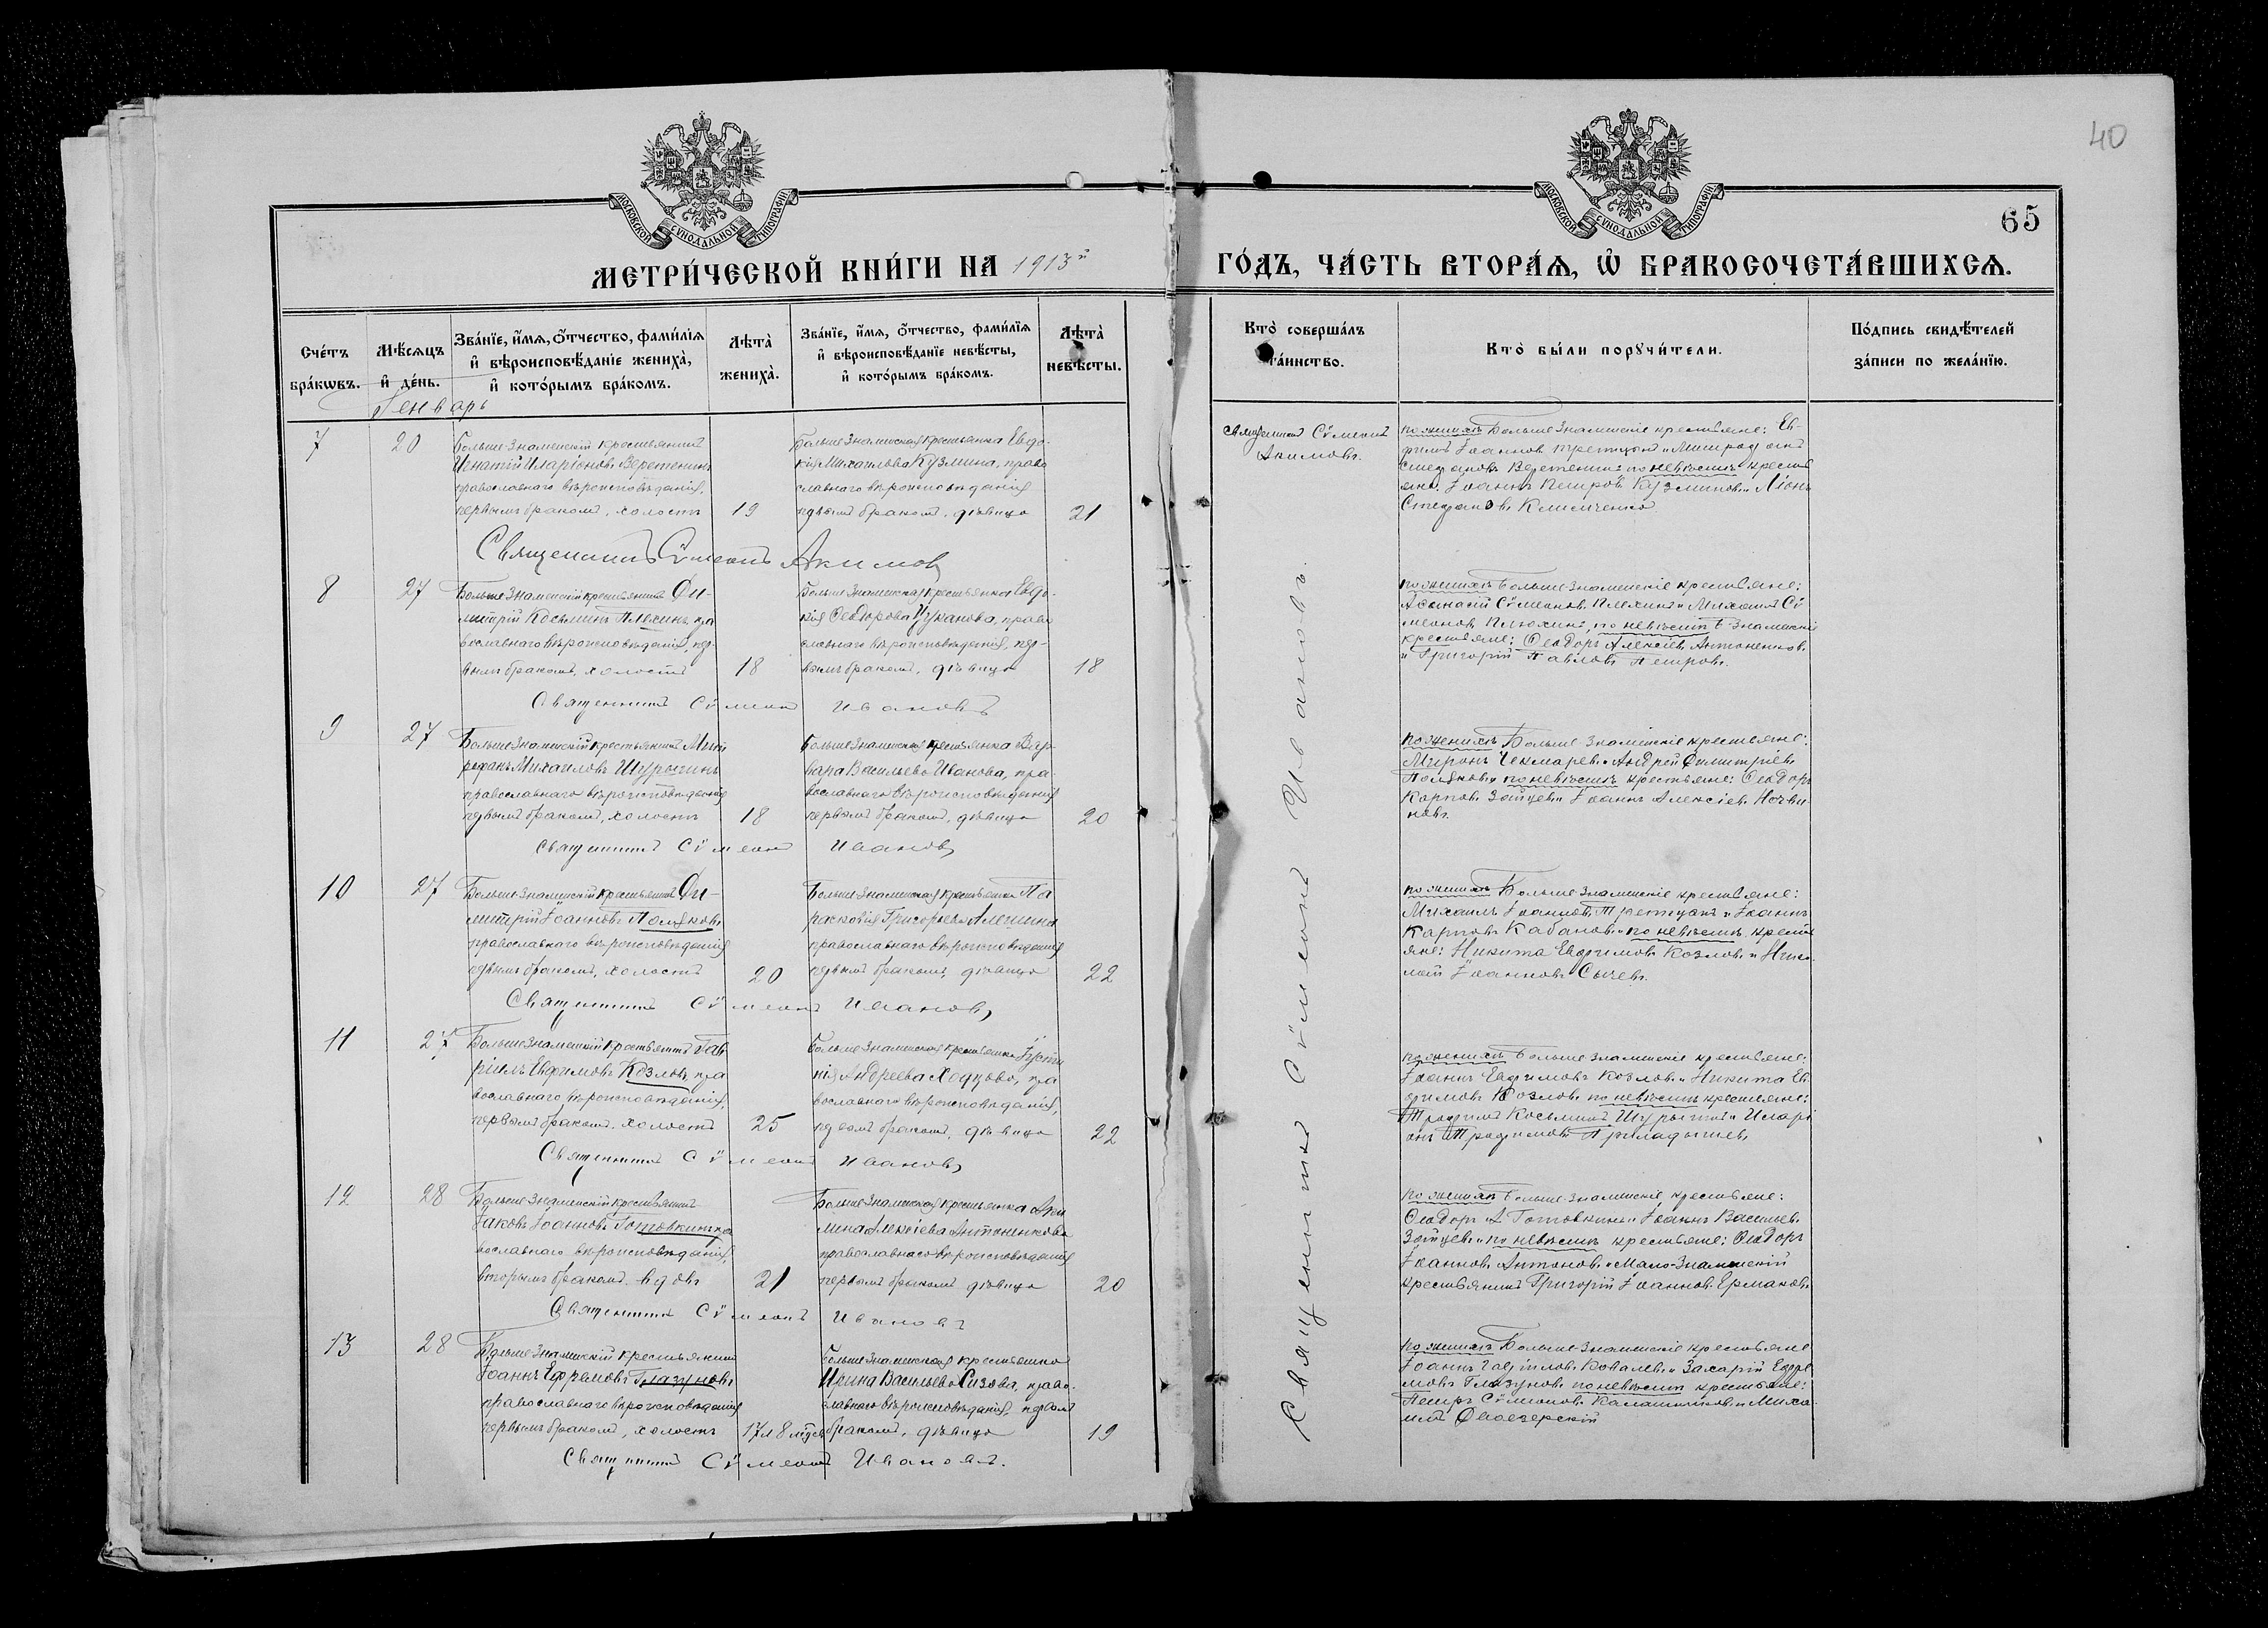 40
65
МОСКОВСКОЙ СУНОДАЛЬНОЙ ТИПОГРАФІИ
МОСКОВСКОЙ СУНОДАЛЬНОЙ ТИПОГРАФІИ
МЕТРИ́ЧЕСКОЙ КНИ́ГИ НА 1913й
ГО́ДЪ, ЧА́СТЬ ВТОРА́Ѧ, Ѡ҆ БРАКОСОЧЕТА́ВШИХСѦ.
Сче́тъ
бра́кѡвъ.
Мѣ́сѧцъ
и҆ де́нь.
Зва́нїе, и҆́мѧ, ѻ҆́тчество, фами́лїѧ
и҆ вѣроисповѣ́данїе жениха̀,
и҆ кото́рымъ бра́комъ.
Лѣта̀
жениха̀.
Зва́нїе, и҆́мѧ, ѻ҆́тчество, фами́лїѧ
и҆ вѣроисповѣ́данїе невѣ́сты,
и҆ кото́рымъ бра́комъ.
Лѣта̀
невѣ́сты.
Кто̀ соверша́лъ
та́инство.
Кто̀ бы́ли порꙋчи́тели.
По́дпись свидѣ́телей
за́писи по жела́нїю.
Генварь
7
20
Больше-Знаменскій крестьянинъ
Игнатій Иларіоновъ Веретенинъ
православнаго вѣроисповѣданія,
первымъ бракомъ, холостъ
19
Больше Знаменская крестьянка Евдо-
кія Михаилова Кузмина, право
славнаго вѣроисповѣданія
первымъ бракомъ, дѣвица
21
Священникъ Сѵмеонъ
Акимовъ.
по женихѣ Больше Знаменскіе крестьяне: Ев-
Іоанновъ Третцакъ и Митрофанъ
Стефановъ Веретенинъ по невѣстѣ крестья
яне: Іоаннъ Петровъ Кузминовъ и
Стефановъ Климченко
Священникъ Сѵмеонъ Акимовъ
8
27
Больше Знаменскій крестьянинъ Ди-
митрій Косьминъ Плехинъ, пра
вославнаго вѣроисповѣданія, пер-
вымъ бракомъ, холостъ
18
Больше Знаменская крестьянка Евдо-
кія Ѳеодорова Цуканова, право
славнаго вѣроисповѣданія, пер-
вымъ бракомъ, дѣвица
18
по женихѣ Больше Знаменскіе крестьяне:
Аѳанасій Сѵмеоновъ Плехинъ и Михаилъ Сѵ
меоновъ Плюхинъ, по невѣстѣ Б Знаменскіе
крестьяне: Ѳеодоръ Алексіевъ Антоненковъ
и Григорій Павловъ Петровъ.
Священникъ Сѵмеонъ Ивановъ
9
27
Больше Знаменскій крестьянинъ Митро
фанъ Михаиловъ Шурыгинъ
православнаго вѣроисповѣданія
первымъ бракомъ, холостъ
18
Больше Знаменская крестьянка Вар-
вара Васильева Иванова, пра-
вославнаго вѣроисповѣданія
первымъ бракомъ, дѣвица
20
По женихѣ Больше Знаменскіе крестьяне:
Миронъ Чекмаревъ и Андрей Димитріевъ
Поляковъ и по невѣстѣ крестьяне: Ѳеодоръ
Карповъ Зайцевъ и Іоаннъ Алексіевъ Ночви
новъ.
Священникъ Сѵмеонъ Ивановъ
10
27
Больше Знаменскій крестьянинъ Ди-
митрій Іоанновъ Поляковъ
православнаго вѣроисповѣданія
первымъ бракомъ, холостъ
20
Больше Знаменская крестьянка Па
расковія Григорьева Алехина
православнаго вѣроисповѣданія
первымъ бракомъ, дѣвица
22
по женихѣ Больше Знаменскіе крестьяне:
Михаилъ Іоанновъ Третцакъ и Іоаннъ
Карповъ Кабановъ и по невѣстѣ кресть
яне: Никита Евфимовъ Козловъ и Нико
лай Іоанновъ Сычевъ.
Священникъ Сѵмеонъ Ивановъ
11
27
Больше Знаменскій крестьянинъ Гав
ріилъ Евфимовъ Козловъ, пра
вославнаго вѣроисповѣданія,
первымъ бракомъ, холостъ
25
Больше Знаменская крестьянка Іусти
нія Андреева Ходцова, пра
вославнаго вѣроисповѣданія,
первымъ бракомъ, дѣвица
22
по женихѣ Больше Знаменскіе крестьяне:
Іоаннъ Евфимовъ Козловъ и Никита Ев
фимовъ Козловъ по невѣстѣ крестьяне:
Трофимъ Косьминъ Шурыгинъ и Иларі
онъ Трофимовъ Приладышевъ
Священникъ Сѵмеонъ Ивановъ
12
28
Больше Знаменскій крестьянинъ
Іаковъ Іоанновъ Готовкинъ, пра
вославнаго вѣроисповѣданія,
вторымъ бракомъ, вдовъ
21
Больше Знаменская крестьянка Аки
лина Алексіева Антоненкова
православнаго вѣроисповѣданія
первымъ бракомъ дѣвица
20
по женихѣ Больше-Знаменскіе крестьяне:
Ѳеодоръ А Готовкинъ и Іоаннъ Васильевъ
Зайцевъ и по невѣстѣ крестьяне: Ѳеодоръ
Іоанновъ Антоновъ и Мало-Знаменскій
крестьянинъ Григорій Іоанновъ Ермаковъ
Священникъ Сѵмеонъ Ивановъ
13
28
Больше Знаменскій крестьянинъ
Іоаннъ Ефремовъ Глазуновъ
православнаго вѣроисповѣданія
первымъ бракомъ, холостъ
17 и 8 мцсв
Больше Знаменская крестьянка
Ирина Васильева Сизова, право-
славнаго вѣроисповѣданія, первымъ
бракомъ, дѣвица
19
по женихѣ Больше Знаменскіе крестьяне
Іоаннъ Гавріиловъ Ковалевъ и Захарій Ефре
мовъ Глазуновъ по невѣстѣ крестьяне:
Петръ Сѵмеоновъ Калашниковъ и Миха
илъ
Священникъ Сѵмеонъ Ивановъ.
Священникъ Сѵмеонъ Ивановъ.